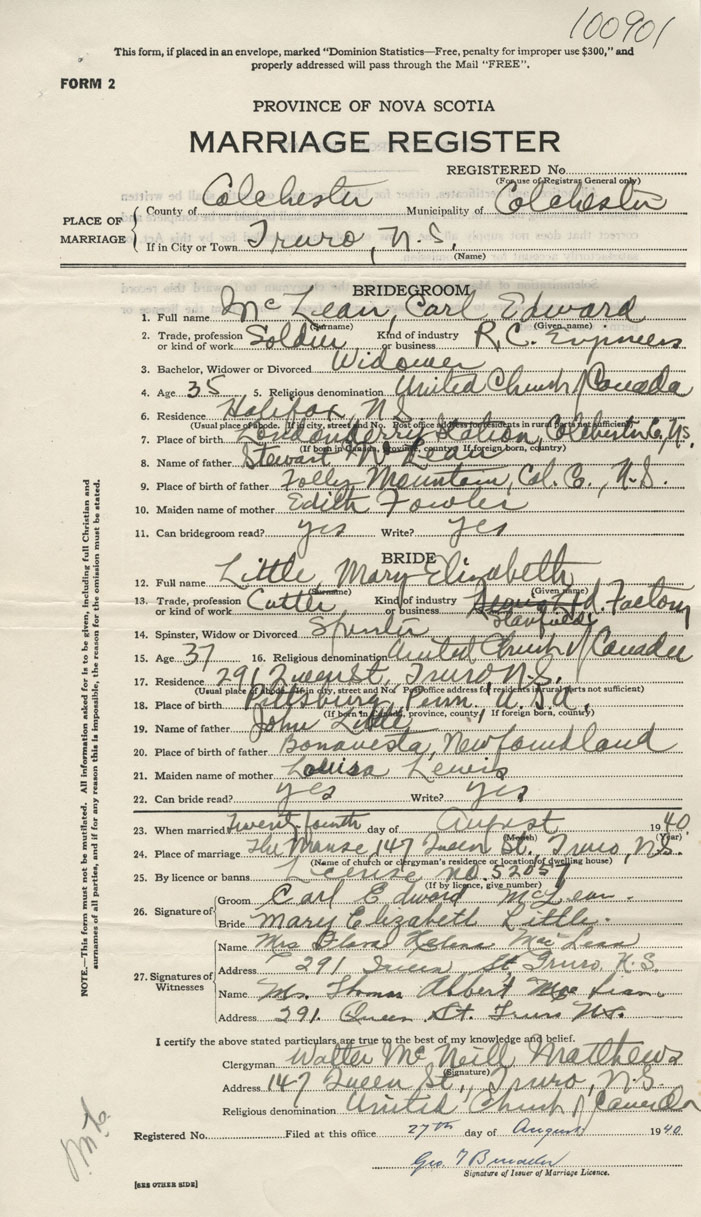 100901
This form, if placed in an envelope, marked "Dominion Statistics—Free, penalty for improper use $300," and
properly addressed will pass through the Mail "FREE".
FORM 2
PROVINCE OF NOVA SCOTIA
MARRIAGE REGISTER
REGISTERED No.
(For use of Registrar General only)
PLACE OF MARRIAGE
County of Colchester Municipality of Colchester
If in City or Town Truro, N.S.
(Name)
BRIDEGROOM
1. Full name McLean, Carl Edward
(Surname) (Given name)
2. Trade, profession or kind of work Soldier Kind of industry or business R.C. Engineers
3. Bachelor, Widower or Divorced Widower
4. Age 35 5. Religious denomination United Church of Canada
6. Residence Halifax, N.S.
(Usual place of abode. If in city, street and No. Post office address for residents in rural parts not sufficient)
7. Place of birth Londonderry Station, Colchester Co., N.S.
(If born in Canada, province, county. If foreign born, country)
8. Name of father Stewart McLean
9. Place of birth of father Folly Mountain, Col. C., N.S.
10. Maiden name of mother Edith Fowler
11. Can bridegroom read? yes Write? yes
BRIDE
12. Full name Little, Mary Elizabeth
(Surname) (Given name)
13. Trade, profession or kind of work Cutter Kind of industry or business Stanfields Factory
14. Spinster, Widow or Divorced Spinster
15. Age 37 16. Religious denomination United Church of Canada
17. Residence 291 Queen St., Truro, N.S.
(Usual place of abode. If in city, street and No. Post office address for residents in rural parts not sufficient)
18. Place of birth Pittsburg, Penn. U.S.A.
(If born in Canada, province, county. If foreign born, country)
19. Name of father John Little
20. Place of birth of father Bonavesta, Newfoundland
21. Maiden name of mother Louisa Lewis
22. Can bride read? yes Write? yes
23. When married Twenty fourth day of August 1940.
(Month) (Year)
24. Place of marriage The Manse, 147 Queen St., Truro, N.S.
(Name of church or clergyman's residence or location of dwelling house)
25. By licence or banns License no. 52057
(If by licence, give number)
26. Signature of
Groom Carl Edward McLean.
Bride Mary Elizabeth Little.
27. Signatures of Witnesses
Name Mrs Helena MacLean
Address 291 Queen St, Truro, N.S.
Name Thomas Albert MacLean
Address 291 Queen St. Truro N.S.
I certify the above stated particulars are true to the best of my knowledge and belief.
Clergyman Walter McNeill Matthews
(Signature)
Address 147 Queen St., Truro, N.S.
Religious denomination United Church of Canada
Registered No. Filed at this office 27th day of August 1940.
Geo.
Signature of Issuer of Marriage Licence.
[SEE OTHER SIDE]
NOTE.—This form must not be mutilated. All information asked for is to be given, including full Christian and
surnames of all parties, and if for any reason this is impossible, the reason for the omission must be stated.